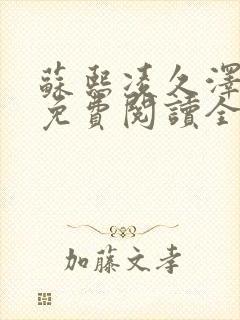 蘇熙凌久澤
免費閱讀全
加藤文孝